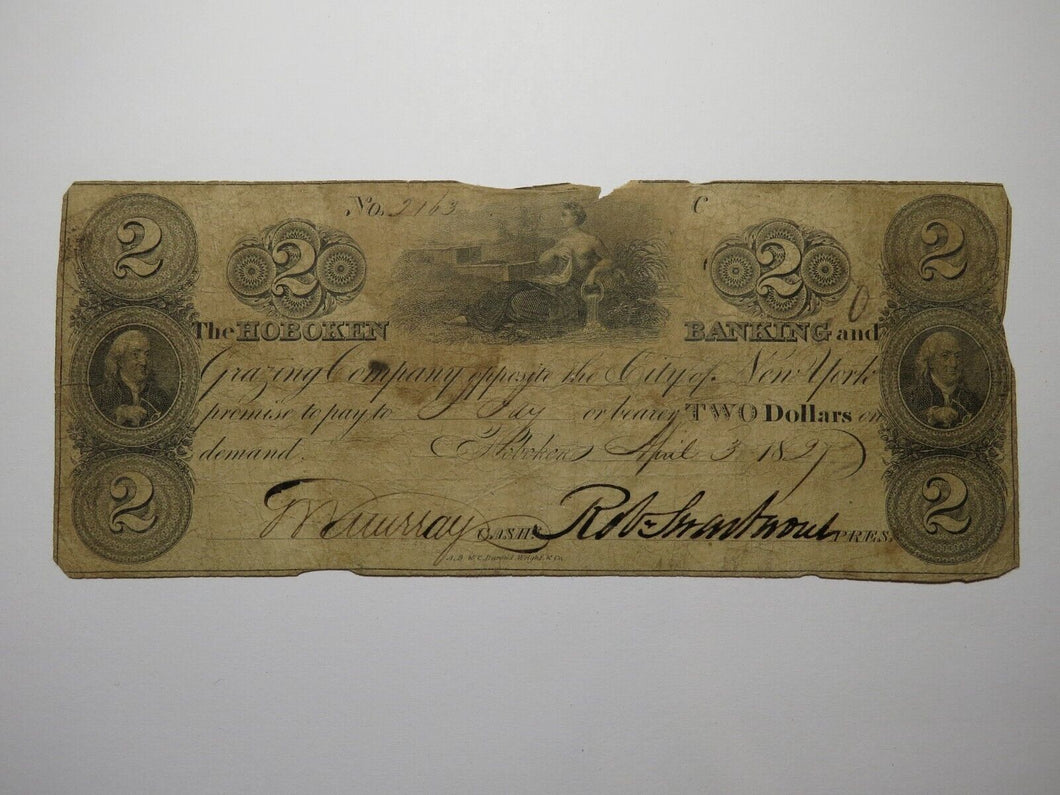 2 No. 2163 C 2
2 2
The HOBOKEN BANKING and
Grazing Company opposite the City of New York
promise to pay to or bearer TWO Dollars on
demand. Hoboken April 3 1827
Cash. Pres.
2 2